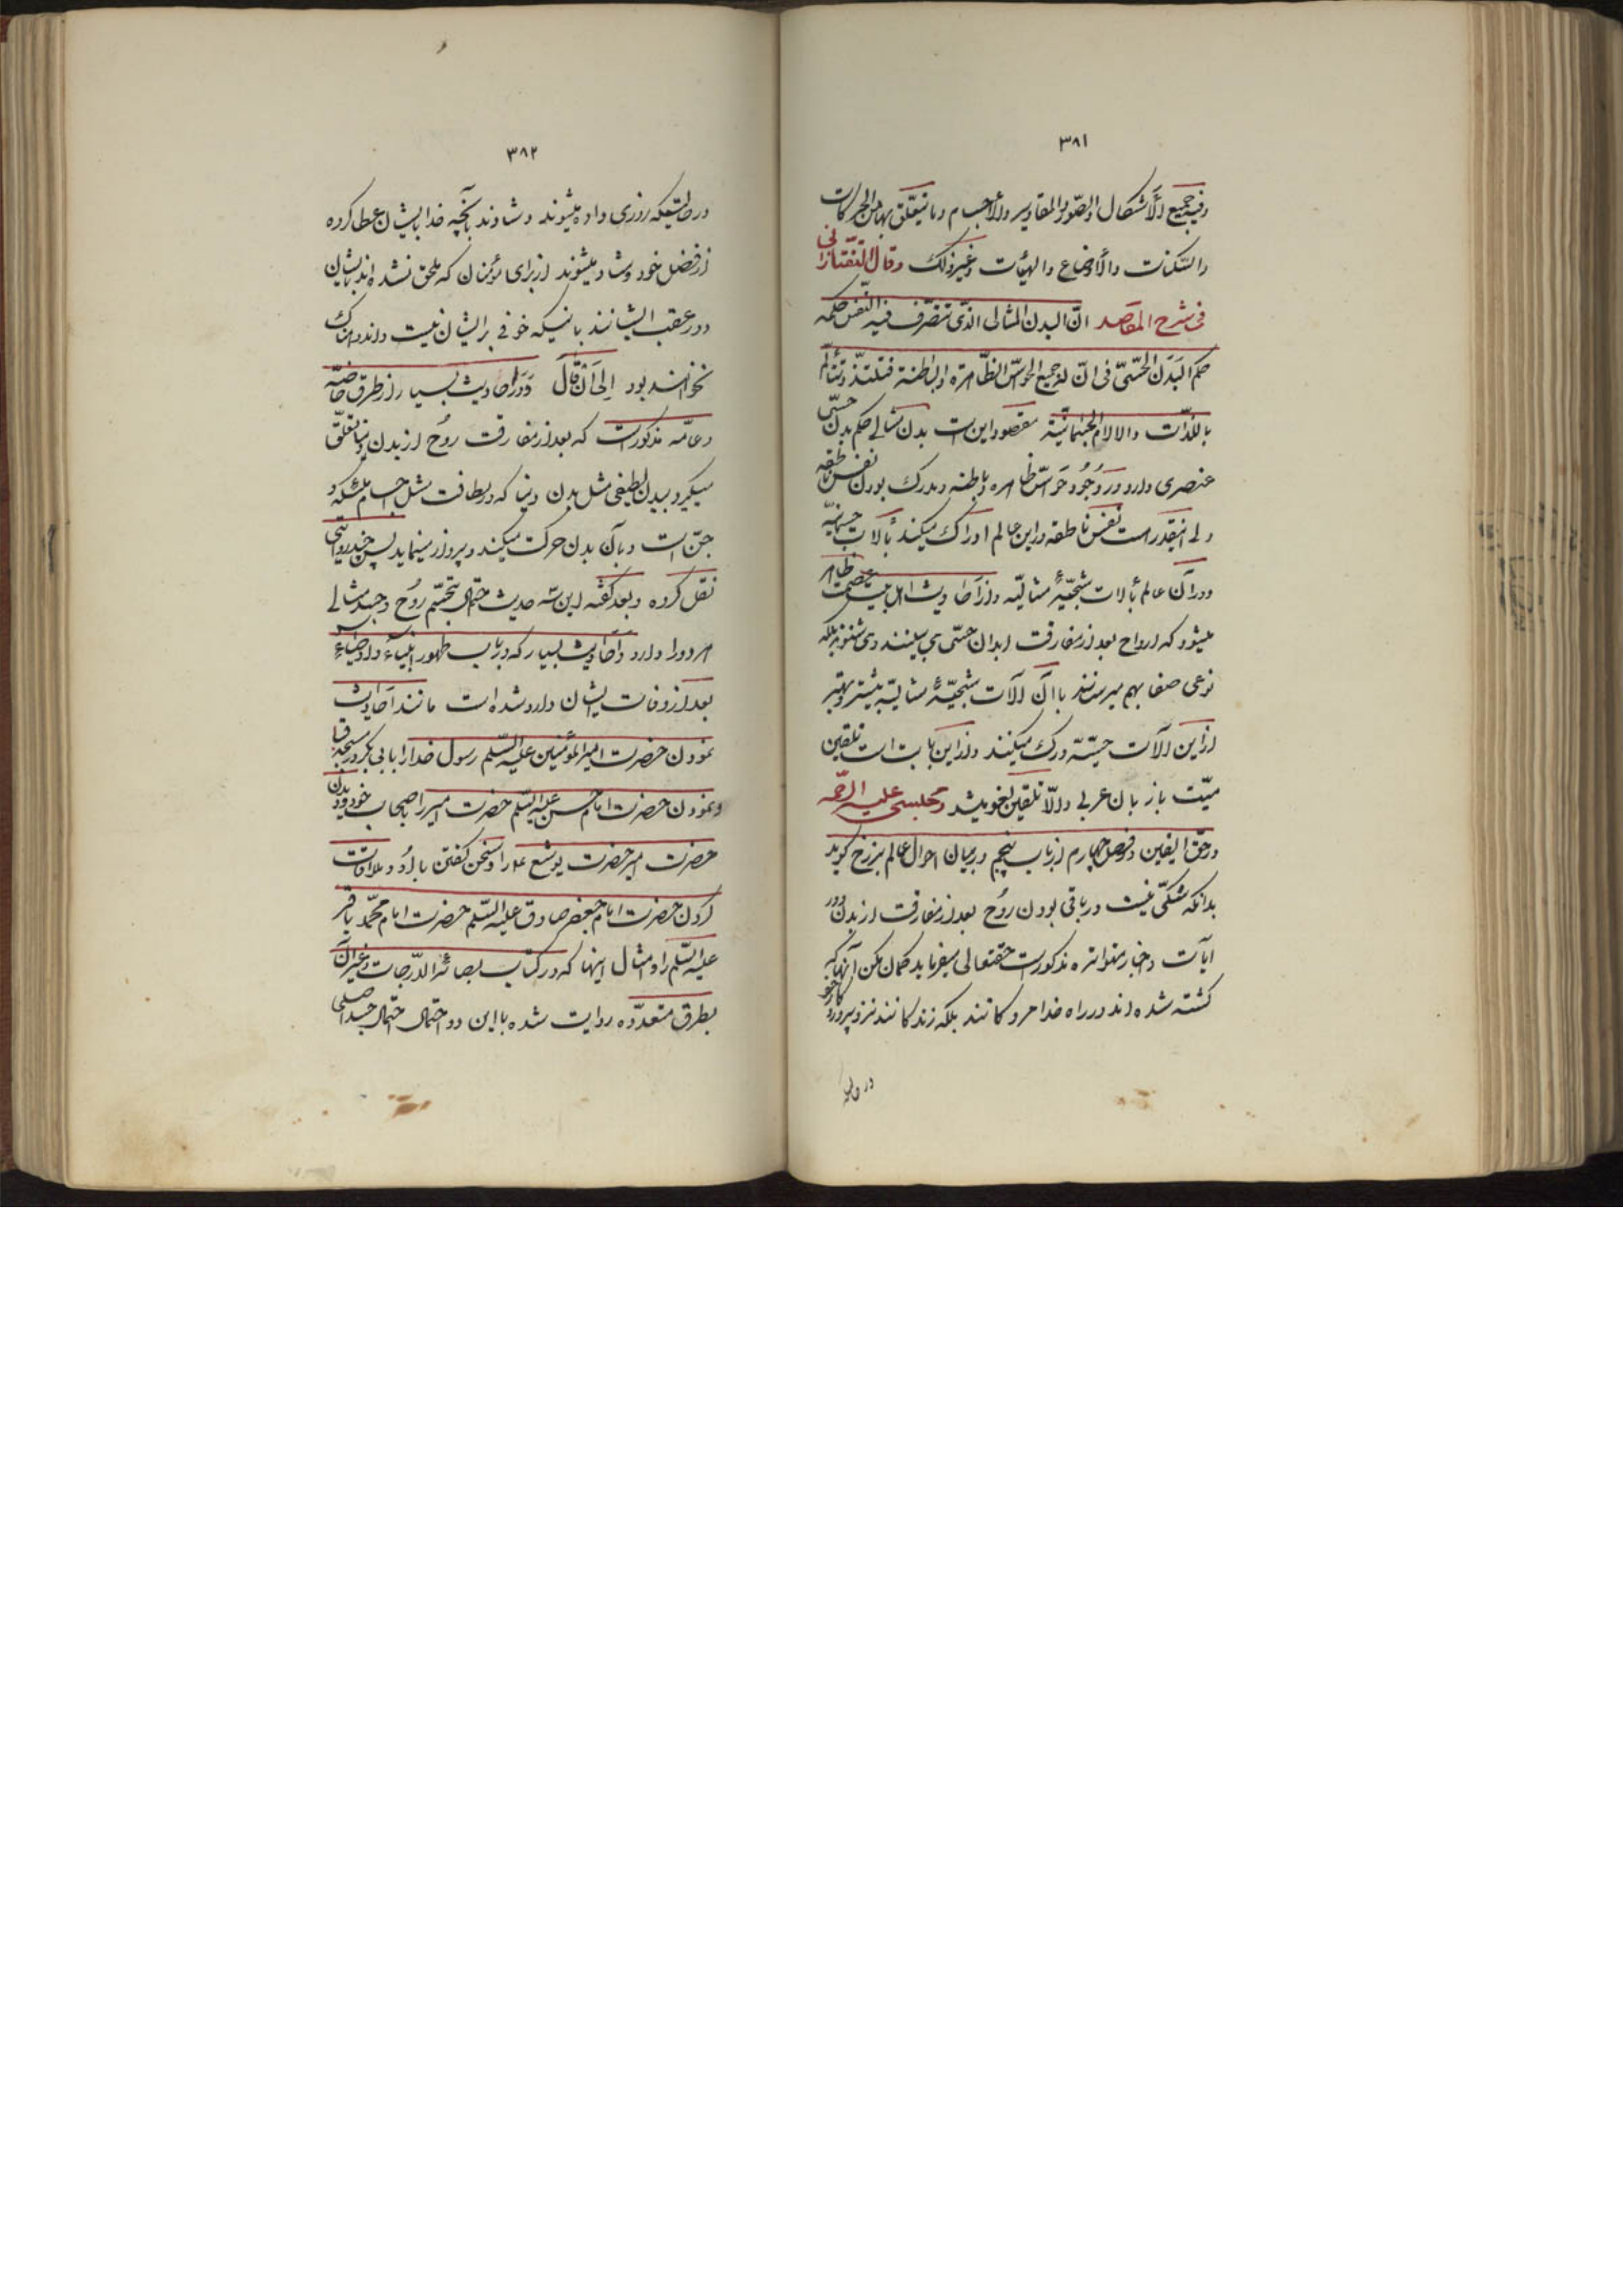 ۳۸۱
وفیه جمیع الأشکال والصّور والمقادیر والأجسام وما یتعلّق بها من الحرکات
والسّکنات والأوضاع والهیئات وغیر ذلک وقال التّفتازانی
فی شرح المقاصد انّ البدن المثالی الذی تتصرّف فیه النّفس حکمه
حکم البَدَن الحسّیّ فی انّ له جمیع الحواسّ الظّاهرة والباطنة فتلتذّ وتتألّم
باللّذّات والالام الجسمانیّة مقصود این است بدن مثالی حکم بدن حسّی
عنصری دارد در وُجُود حَواسّ ظاهره وباطنه ومدرک بودن نفس ناطقه
ولی اینقدر هست نفس ناطقه در این عالم ادراک میکند بآلات جسمانیّه
ودر آن عالم بألات شبحیّهٔ مثالیّه واز أحادیث اهل بیت عصمت ظاهر
میشود که ارواح بعد از مفارقت ابدان حسّی می بینند و می شنوند بلکه
نوعی صفا بهم میرسانند با آن آلات شبحیّهٔ مثالیّه بیشتر وبهتر
از این آلات حسّیّه درک میکنند واز این باب است تلقین
میّت باز بان عربی والّا تلقین لغو میشد ومجلسی علیه الرّحمه
در حقّ الیقین در فصل چهارم از باب پنجم در بیان احوال عالم برزخ گوید
بدانکه شکّی نیست در باقی بودن روُح بعد از مفارقت از بدن ودر
ایات واخبار متواتره مذکور است حقتعالی میفرماید گمان مکن آنها که
کشته شده اند در راه خدا مردکانند بلکه زندکانند نزد پروردکار خود
در حالیکه
۳۸۲
در حالتیکه روزی داده میشوند وشادند بآنچه خدا بایشان عطا کرده
از فضل خود وشاد میشوند از برای مؤمنان که ملحق نشده اند بایشان
ودر عقب ایشانند باینکه خوفی بر ایشان نیست واندوهناک
نخواهند بود إلی أنْ قالَ ودَر احادیث بسیار از طرق خاصّه
وعامّه مذکور است که بعد از مفارقت روُح از بدن دنیا تعلّق
میگیرد ببدن لطیفی مثل بدن دنیا که در لطافت مثل اجسام ملئکه و
جنّ است وبآن بدن حرکت میکند وپرواز مینماید پس چند روایتی
نقل کرده وبعد گفته این سه حدیث احتمال تجسّم روُح وجسد مثالی
هر دورا دارد وأحادیث بسیار که در باب ظهور انبیاء واوصیاء
بعد از وفات ایشان وارد شده است مانند احادیث
نمودن حضرت امیر المؤمنین علیه السّلم رسول خدا را بابی بکر در مسجد قبا
ونمودن حضرت امام حسن علیه السّلم حضرت امیر را باصحاب خود ودیدن
حضرت امیر حضرت یوشع ع را وسخن گفتن با او وملاقات
کردن حضرت امام جعفر صادق علیه السّلم حضرت امام محمّد باقر
علیه السّلم را وامثال اینها که در کتاب بصائر الدّرجات وغیر آن
بطرق متعدّده روایت شده با این دو احتمال احتمال جسد اصلی